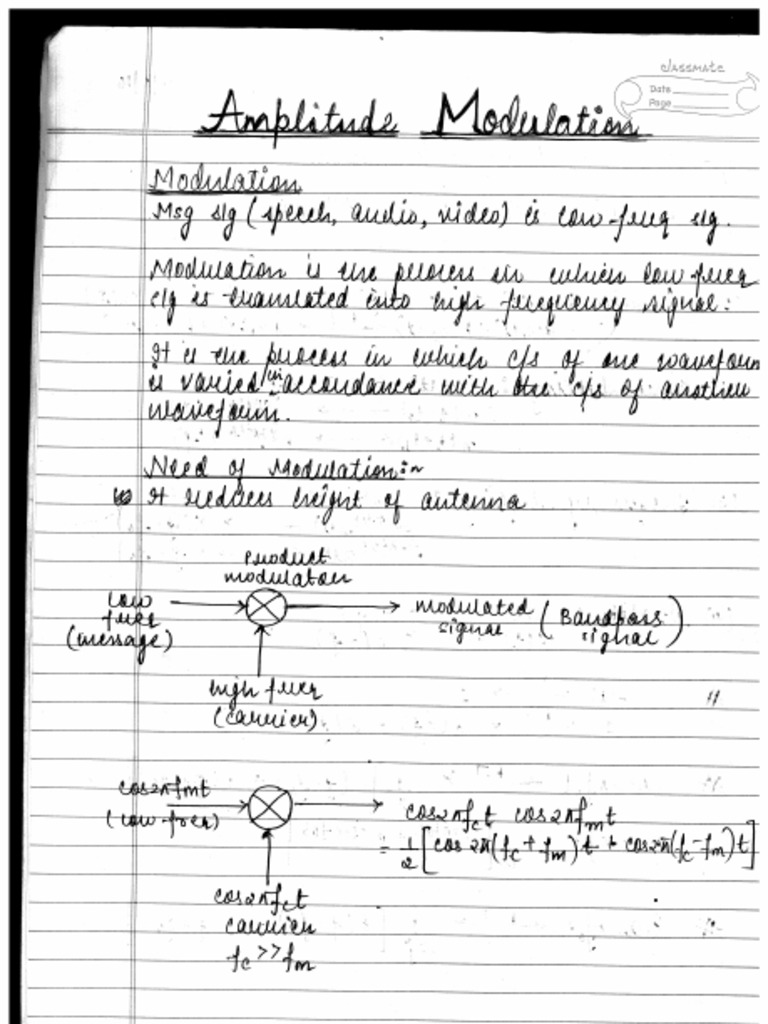 classmate
Date
Page
Amplitude Modulation
Modulation
Msg s/g (speech, audio, video) is low-freq s/g.
Modulation is the process in which low freq
s/g is translated into high frequency signal.
It is the process in which c/s of one waveform
is varied in accordance with the c/s of another
waveform.
Need of Modulation:~
It reduces height of antenna
Product
modulator
low
freq
(message)
modulated
signal
(Bandpass
signal)
high freq
(carrier)
cos2πfmt
(low freq)
cos2πfct cos2πfmt
= 1/2 [cos 2π(fc + fm)t + cos2π(fc - fm)t]
cos2πfct
carrier
fc >> fm